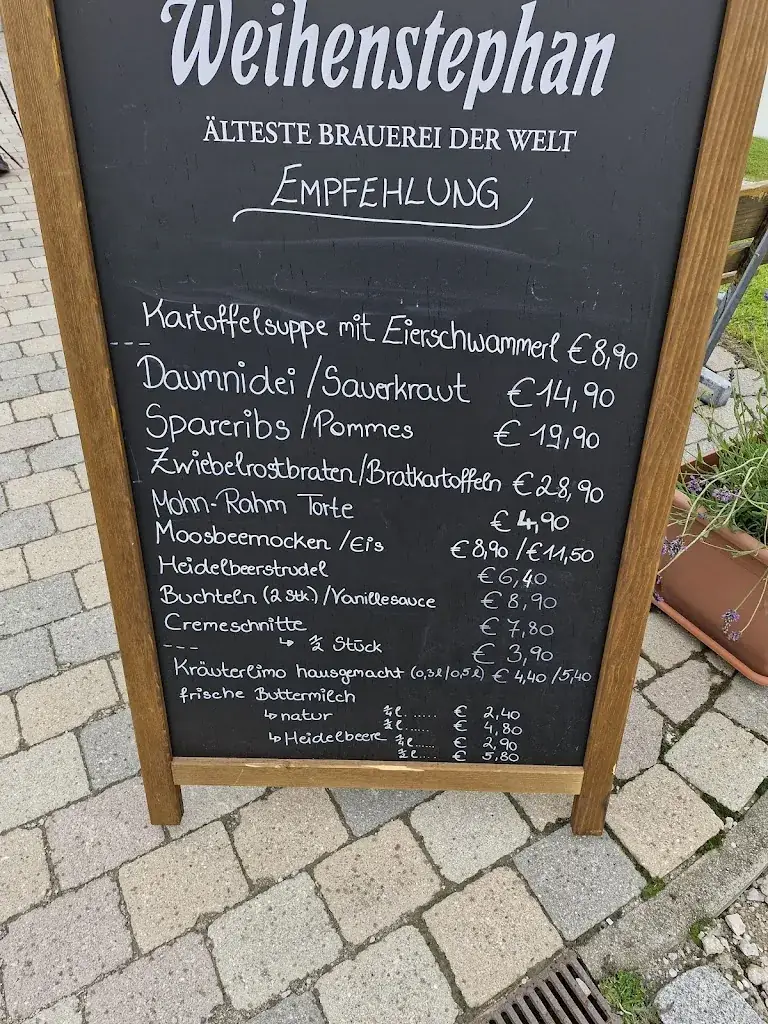 Weihenstephan
ÄLTESTE BRAUEREI DER WELT
EMPFEHLUNG
Kartoffelsuppe mit Eierschwammerl € 8,90
---
Daumnidei / Sauerkraut € 14,90
Spareribs / Pommes € 19,90
Zwiebelrostbraten / Bratkartoffeln € 28,90
Mohn-Rahm Torte € 4,90
Moosbeernocken / Eis € 8,90 / € 11,50
Heidelbeerstrudel € 6,40
Buchteln (2 Stk.) / Vanillesauce € 8,90
Cremeschnitte € 7,80
↳ ½ Stück € 3,90
---
Kräuterlimo hausgemacht (0,3l / 0,5l) € 4,40 / 5,40
frische Buttermilch
↳ natur ¼ l ..... € 2,40
½ l ..... € 4,80
↳ Heidelbeere ¼ l ..... € 2,90
½ l ..... € 5,80